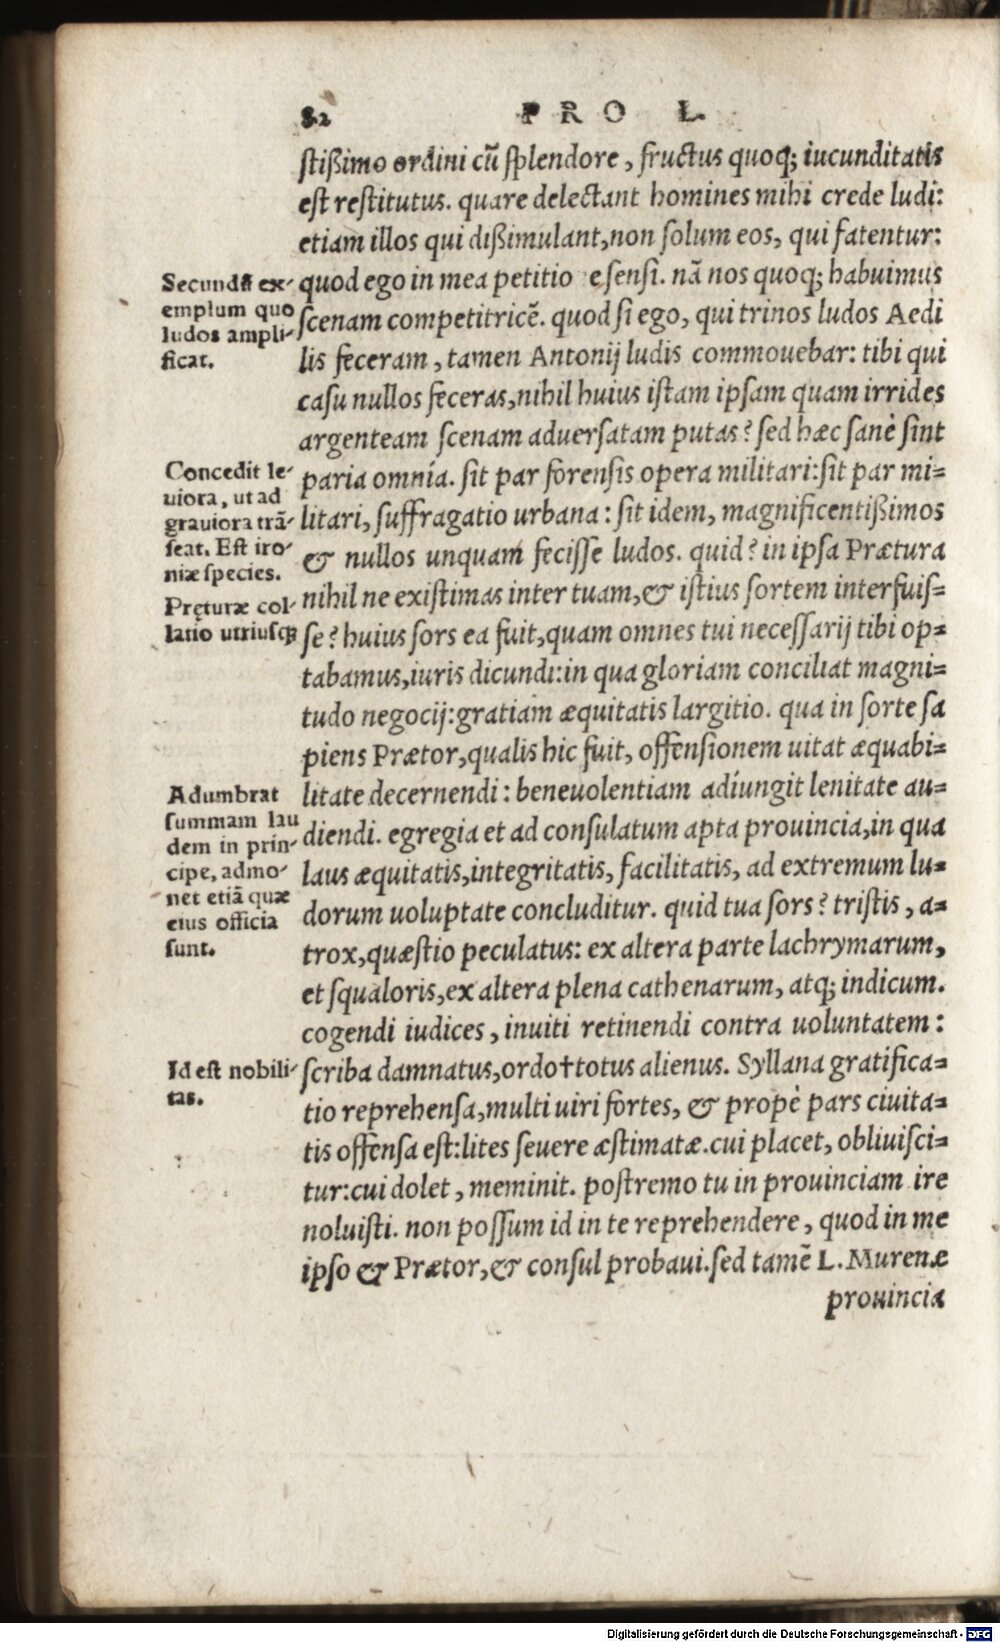 82 PRO L.
stißimo ordini cũ splendore, fructus quoq; iucunditatis
est restitutus. quare delectant homines mihi crede ludi:
etiam illos qui dißimulant, non solum eos, qui fatentur:
quod ego in mea petitio e sensi. nã nos quoq; habuimus
scenam competitricẽ. quod si ego, qui trinos ludos Aedi
lis feceram, tamen Antonij ludis commouebar: tibi qui
casu nullos feceras, nihil huius istam ipsam quam irrides
argenteam scenam aduersatam putas? sed hæc sanè sint
paria omnia. sit par forensis opera militari: sit par mi=
litari, suffragatio urbana: sit idem, magnificentißimos
& nullos unquam fecisse ludos. quid? in ipsa Prætura
nihil ne existimas inter tuam, & istius sortem interfuis=
se? huius sors ea fuit, quam omnes tui necessarij tibi op=
tabamus, iuris dicundi: in qua gloriam conciliat magni=
tudo negocij: gratiam æquitatis largitio. qua in sorte sa
piens Prætor, qualis hic fuit, offensionem uitat æquabi=
litate decernendi: beneuolentiam adiungit lenitate au=
diendi. egregia et ad consulatum apta prouincia, in qua
laus æquitatis, integritatis, facilitatis, ad extremum lu=
dorum uoluptate concluditur. quid tua sors? tristis, a=
trox, quæstio peculatus: ex altera parte lachrymarum,
et squaloris, ex altera plena cathenarum, atq; indicum.
cogendi iudices, inuiti retinendi contra uoluntatem:
scriba damnatus, ordo†totus alienus. Syllana gratifica=
tio reprehensa, multi uiri fortes, & propè pars ciuita=
tis offensa est: lites seuere æstimatæ. cui placet, obliuisci=
tur: cui dolet, meminit. postremo tu in prouinciam ire
noluisti. non possum id in te reprehendere, quod in me
ipso & Prætor, & consul probaui. sed tamẽ L. Murenæ
prouincia
Secundũ ex-
emplum quo
ludos ampli-
ficat.
Concedit le-
uiora, ut ad
grauiora trã-
seat. Est iro-
niæ species.
Pręturæ col-
latio utriusq;
Adumbrat
summam lau
dem in prin-
cipe, admo-
net etiã quæ
eius officia
sunt.
Id est nobili-
tas.
Digitalisierung gefördert durch die Deutsche Forschungsgemeinschaft - DFG